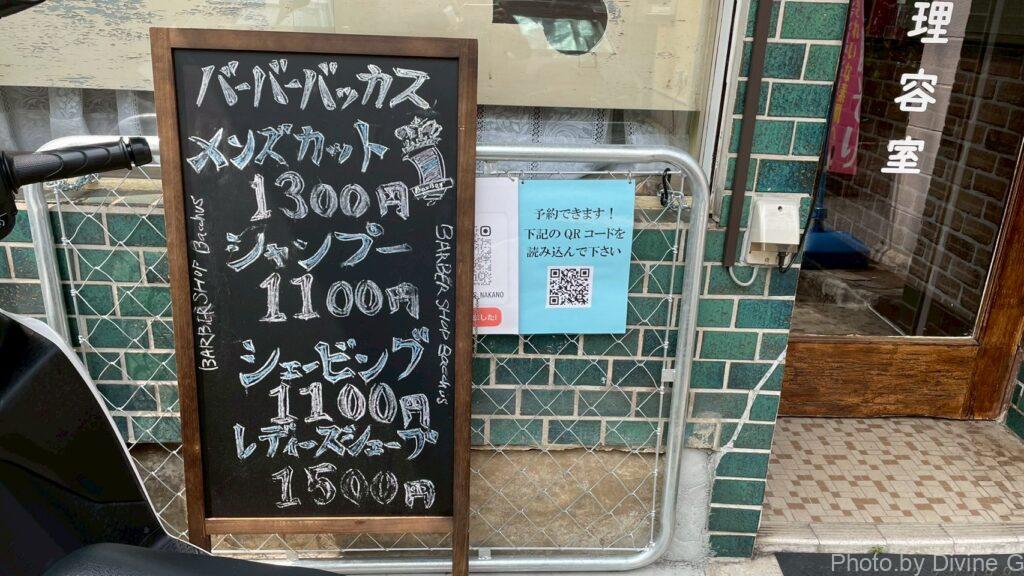 バーバーバッカス
メンズカット
1300円
シャンプー
1100円
シェービング
1100円
レディースシェーブ
1500円
BARBER SHOP Bacchus
BARBER SHOP Bacchus
Barber
予約できます！
下記のQRコードを
読み込んで下さい
NAKANO
した!
理容室
Photo.by Divine G